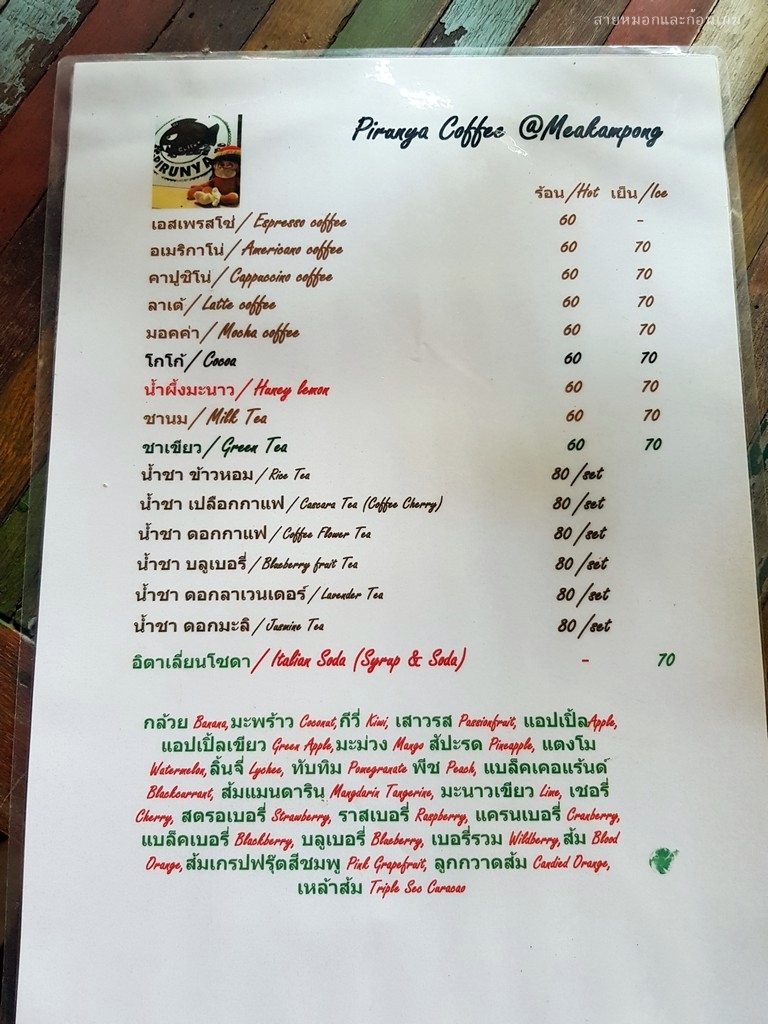 สายหมอกและก้อนเมฆ
Coffee
PIRUNYA
Pirunya Coffee @Meakampong
ร้อน/Hot เย็น/Ice
เอสเพรสโซ่/Espresso coffee 60 -
อเมริกาโน่/Americano coffee 60 70
คาปูชิโน่/Cappuccino coffee 60 70
ลาเต้/Latte coffee 60 70
มอคค่า/Mocha coffee 60 70
โกโก้/Cocoa 60 70
น้ำผึ้งมะนาว/Huney lemon 60 70
ชานม/Milk Tea 60 70
ชาเขียว/Green Tea 60 70
น้ำชา ข้าวหอม/Rice Tea 80/set
น้ำชา เปลือกกาแฟ/Cascara Tea (Coffee Cherry) 80/set
น้ำชา ดอกกาแฟ/Coffee Flower Tea 80/set
น้ำชา บลูเบอรี่/Blueberry fruit Tea 80/set
น้ำชา ดอกลาเวนเดอร์/Lavender Tea 80/set
น้ำชา ดอกมะลิ/Jasmine Tea 80/set
อิตาเลี่ยนโซดา/Italian Soda (Syrup & Soda) - 70
กล้วย Banana,มะพร้าว Coconut,กีวี่ Kiwi, เสาวรส Passionfruit, แอปเปิ้ลApple,
แอปเปิ้ลเขียว Green Apple,มะม่วง Mango สัปะรด Pineapple, แตงโม
Watermelon,ลิ้นจี่ Lychee, ทับทิม Pomegranate พีช Peach, แบล็คเคอแร้นด์
Blackcurrant, ส้มแมนดาริน Mangdarin Tangerine, มะนาวเขียว Lime, เชอรี่
Cherry, สตรอเบอรี่ Strawberry, ราสเบอรี่ Raspberry, แครนเบอรี่ Cranberry,
แบล็คเบอรี่ Blackberry, บลูเบอรี่ Blueberry, เบอรี่รวม Wildberry,ส้ม Blood
Orange,ส้มเกรปฟรุ๊ตสีชมพู Pink Grapefruit, ลูกกวาดส้ม Candied Orange,
เหล้าส้ม Triple Sec Curacao